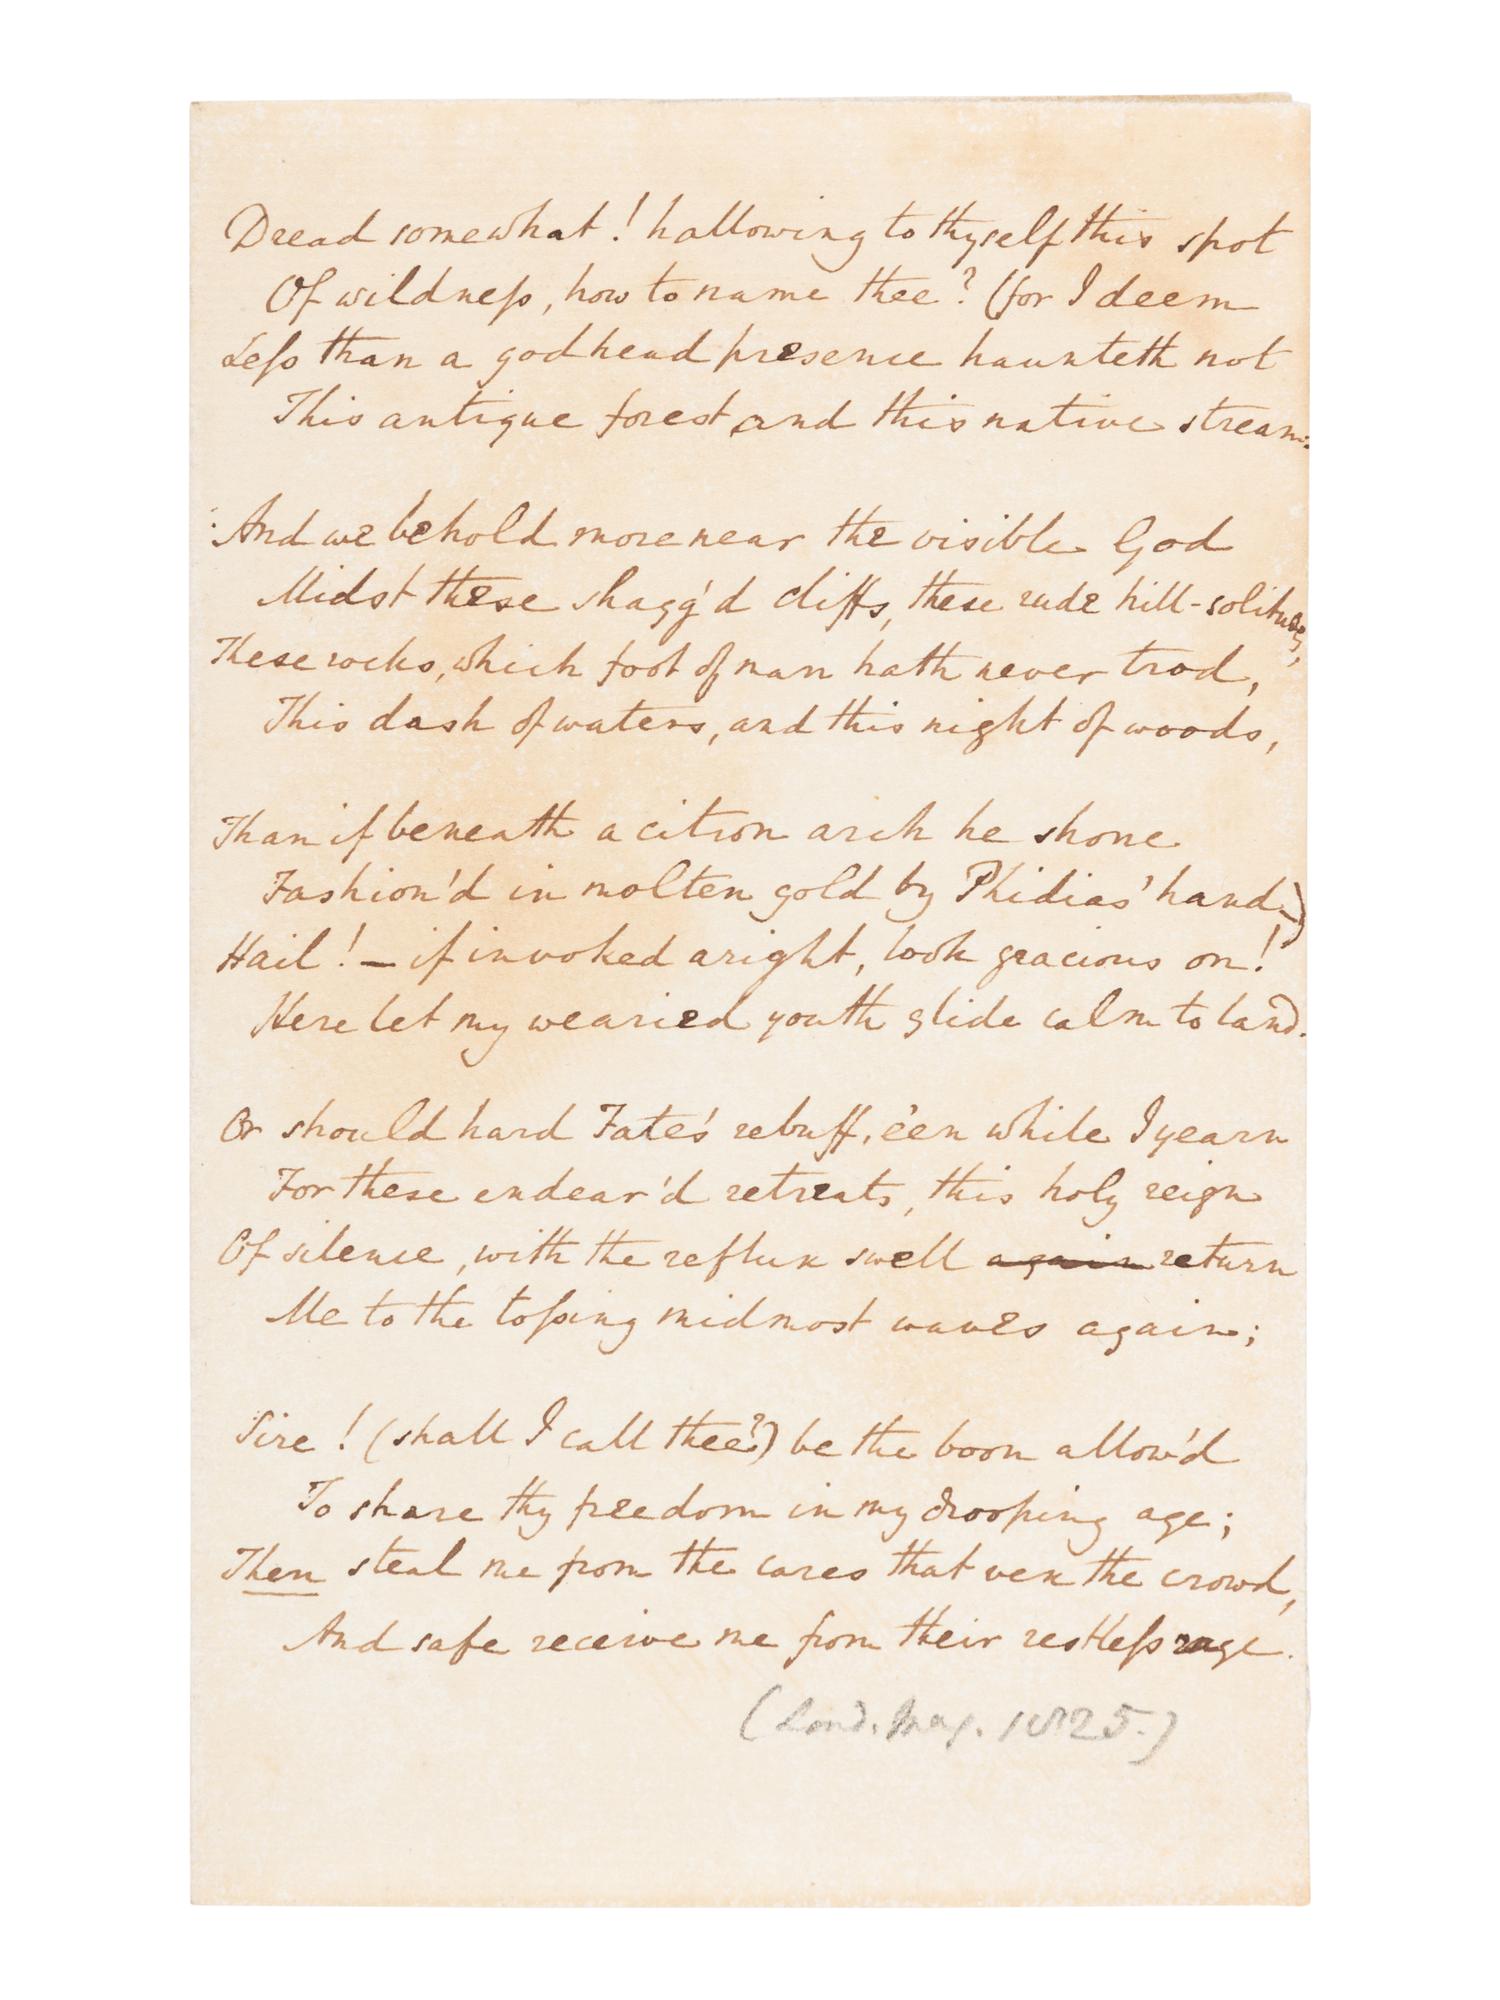 Dread somewhat! hallowing to thyself this spot
Of wildneſs, how to name thee? (for I deem
Leſs than a godhead presence haunteth not
This antique forest, and this native stream:
And we behold more near the visible God
Midst these shagg'd cliffs, these rude hill-solitudes,
These rocks, which foot of man hath never trod,
This dash of waters, and this night of woods,
Than if beneath a citron arch he shone
Fashion'd in molten gold by Phidias' hand.)
Hail! — if invoked aright, look gracious on!
Here let my wearied youth glide calm to land.
Or should hard Fate's rebuff, e'en while I yearn
For these endear'd retreats, this holy reign
Of silence, with the reflux swell again return
Me to the toſsing midmost waves again;
Sire! (shall I call thee?) be the boon allow'd
To share thy freedom in my drooping age;
Then steal me from the cares that vex the crowd,
And safe receive me from their restleſs rage.
(Lond. Mag. 1825.)